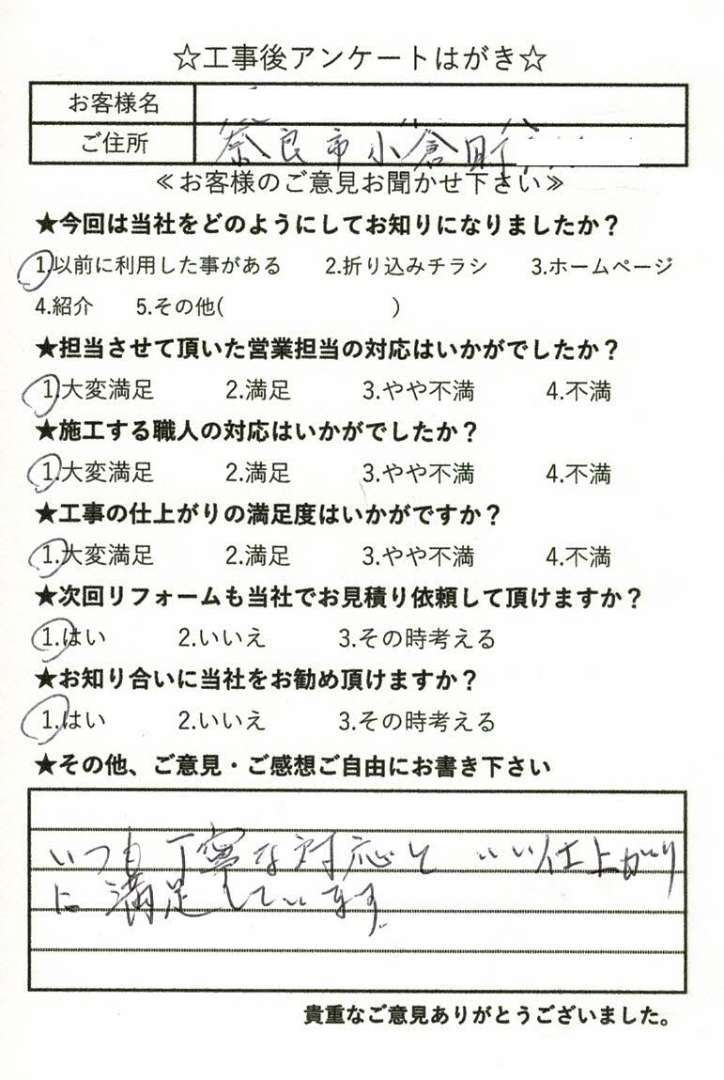 ☆工事後アンケートはがき☆
お客様名
ご住所 奈良市小倉町
≪お客様のご意見お聞かせ下さい≫
★今回は当社をどのようにしてお知りになりましたか？
1.以前に利用した事がある 2.折り込みチラシ 3.ホームページ
4.紹介 5.その他( )
★担当させて頂いた営業担当の対応はいかがでしたか？
1.大変満足 2.満足 3.やや不満 4.不満
★施工する職人の対応はいかがでしたか？
1.大変満足 2.満足 3.やや不満 4.不満
★工事の仕上がりの満足度はいかがですか？
1.大変満足 2.満足 3.やや不満 4.不満
★次回リフォームも当社でお見積り依頼して頂けますか？
1.はい 2.いいえ 3.その時考える
★お知り合いに当社をお勧め頂けますか？
1.はい 2.いいえ 3.その時考える
★その他、ご意見・ご感想ご自由にお書き下さい
いつも丁寧な対応と いい仕上がり
に満足しています。
貴重なご意見ありがとうございました。